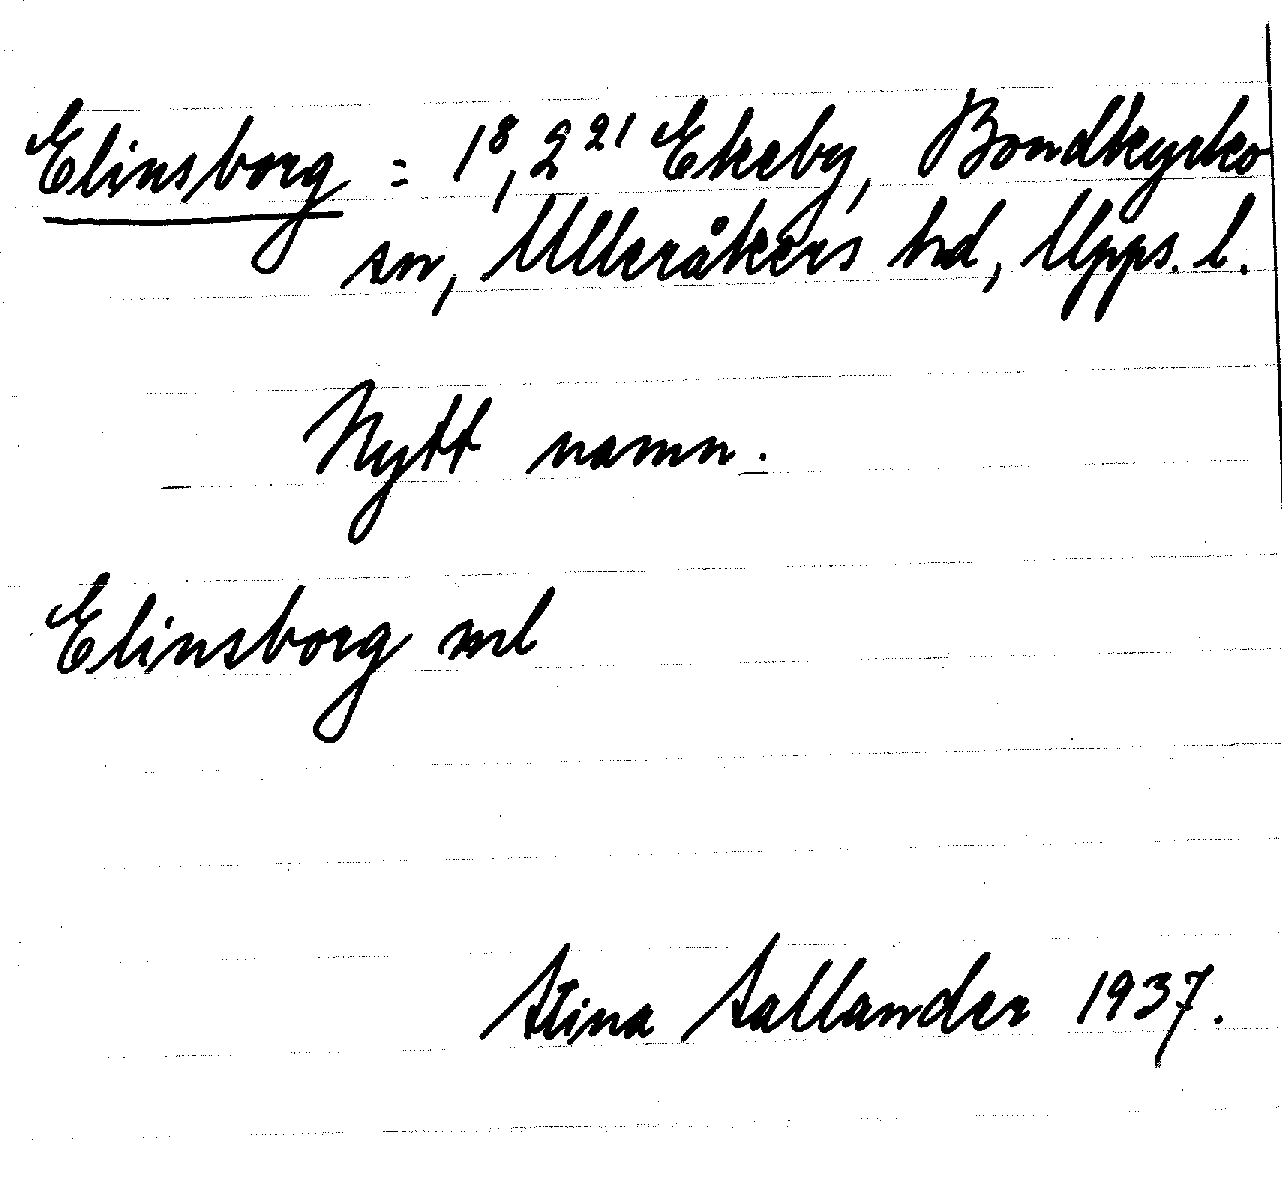 Elinsborg = 1⁸, 2²¹ Ekeby, Bondkyrko
sn, Ulleråkers hd, Upps. l.
Nytt namn.
Elinsborg
Stina Sallander 1937.